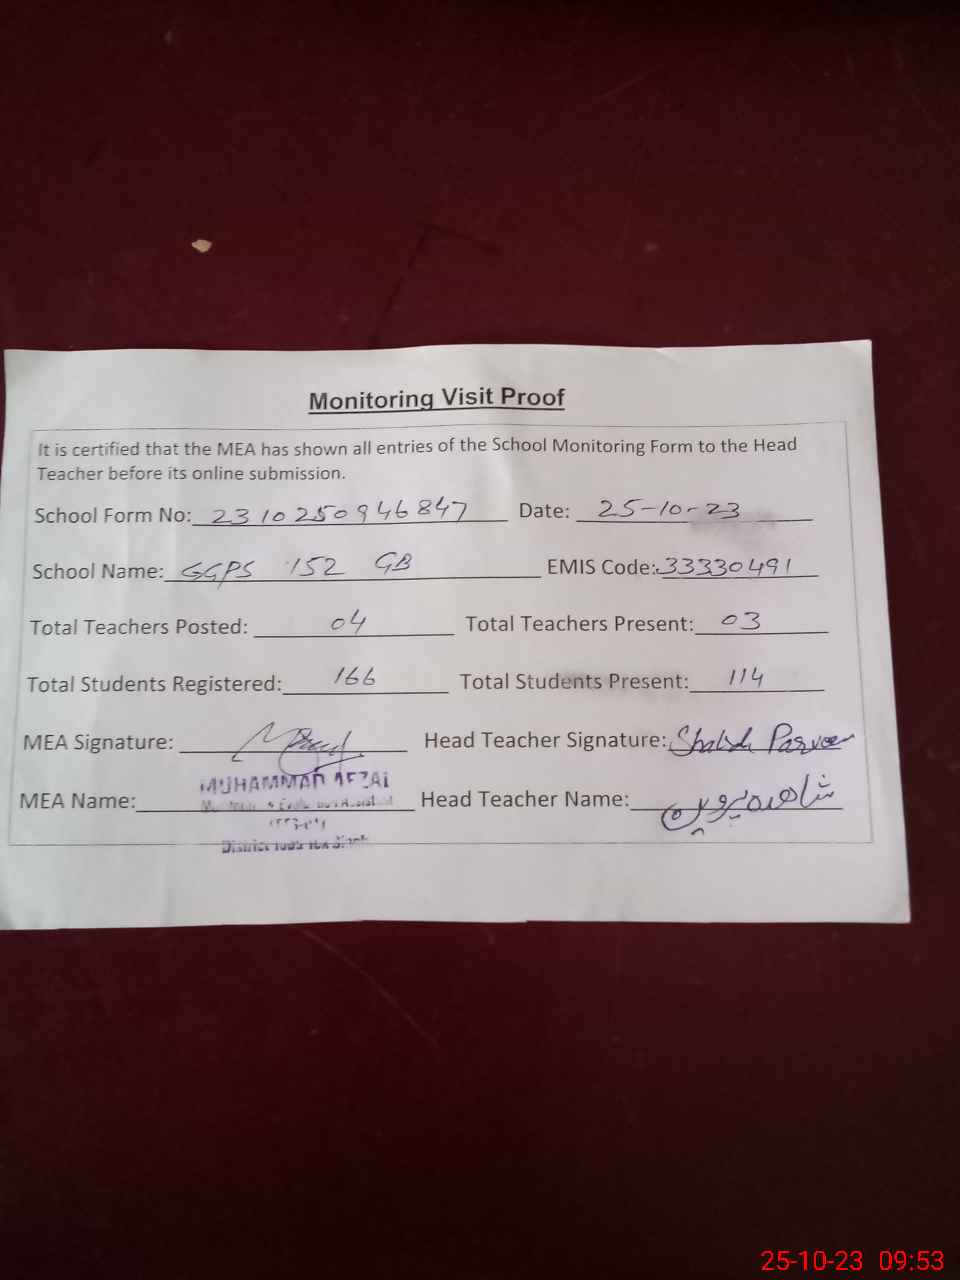 Monitoring Visit Proof
It is certified that the MEA has shown all entries of the School Monitoring Form to the Head
Teacher before its online submission.
School Form No: 2310250946847 Date: 25-10-23
School Name: GGPS 152 GB EMIS Code: 33330491
Total Teachers Posted: 04 Total Teachers Present: 03
Total Students Registered: 166 Total Students Present: 114
MEA Signature: Head Teacher Signature: Parveen
MEA Name: MUHAMMAD AFZAL Head Teacher Name: شاھدہ پروین
District
25-10-23 09:53